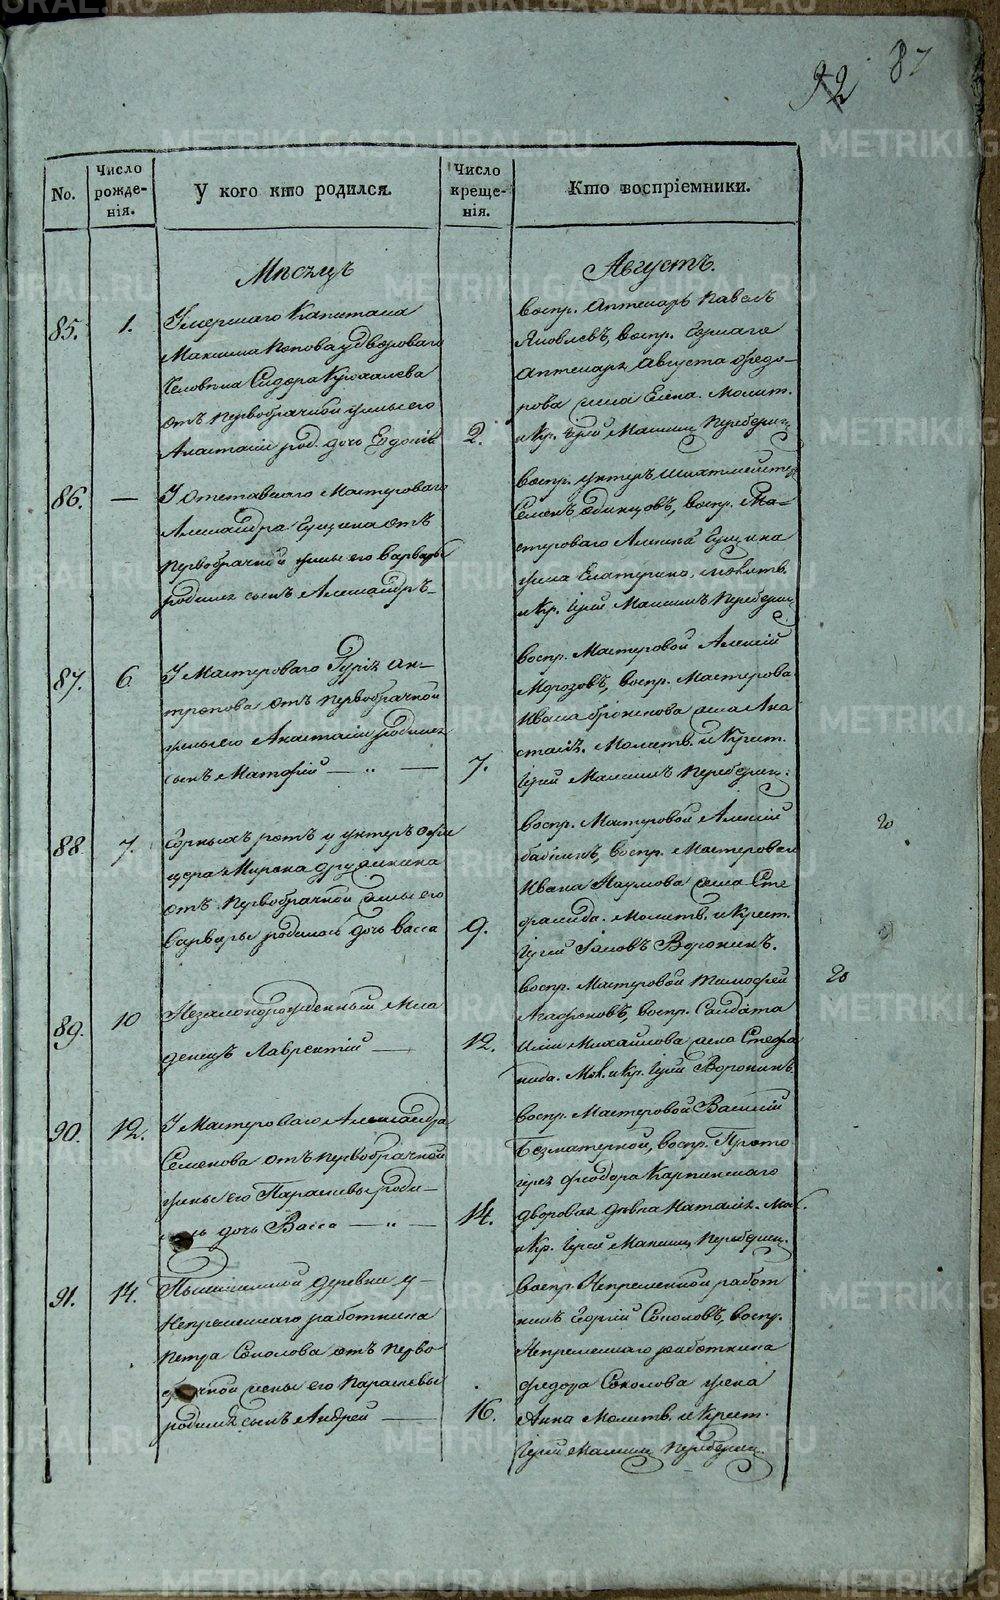 92 87
No.
Число рожде-нія.
У кого кто родился.
Число креще-нія.
Кто воспріемники.
Мѣсяцъ
Августъ.
85.
1.
Умершаго Капитана
Максима Попова у двороваго
человѣка Сидора
отъ первобрачной жены его
Анастасіи род. дочь Евдокія
2.
Воспр. Аптекарь Павелъ
Яковлевъ, воспр.
Аптекаря Августа Федо-
рова жена Елена. Молит.
и Кр. Іерей Максимъ
86.
—
У Отставнаго Мастероваго
Александра Гущина отъ
первобрачной жены его Варвары
родился сынъ Александръ
Воспр. Унтеръ Шихтмейстеръ
Семенъ Одинцовъ, воспр. Ма-
стероваго Алексѣя Гущина
жена Екатерина, молитв.
и Кр. Іерей Максимъ
87.
6
У Мастероваго Гурія Ан-
тропова отъ первобрачной
жены его Анастасіи родился
сынъ Матфей — „ —
7.
Воспр. Мастеровой Алексѣй
Морозовъ, воспр. Мастероваго
Ивана жена Ана
стасія. Молитв. и Крест.
Іерей Максимъ
88.
7.
Горныхъ ротъ у унтеръ офи
цера Мирона
отъ первобрачной жены его
Варвары родилась дочь Васса
9.
Воспр. Мастеровой Алексѣй
Бабкинъ, воспр. Мастероваго
Ивана Наумова жена Сте
фанида. Молитв. и Крест.
Іерей Іаковъ Воронинъ.
20
20
89.
10
Незаконорожденный мла
денецъ Лаврентій —
12.
Воспр. Мастеровой Тимофей
Агафоновъ, воспр. Солдата
Ильи Михайлова жена Стефа
нида. Мол. и Кр. Іерей Воронинъ
90.
12.
У Мастероваго Александра
Семенова отъ первобрачной
жены его Параскевы роди-
лась дочь Васса — „ —
14.
Воспр. Мастеровой Василій
Безматерной, воспр. Прото
іерея Феодора Карпинскаго
дворовая дѣвка Наталія. Мол.
и Кр. Іерей Максимъ
91.
14.
Пышминской деревни у
Непремѣннаго работника
Петра Соколова отъ перво-
брачной жены его Параскевы
родился сынъ Андрей —
16.
Воспр. Непремѣнной работ
никъ Георгій Соколовъ, воспр.
Непремѣннаго работника
Федора Соколова жена
Анна Молитв. и Крест.
Іерей Максимъ
METRIKI.GASO-URAL.RU